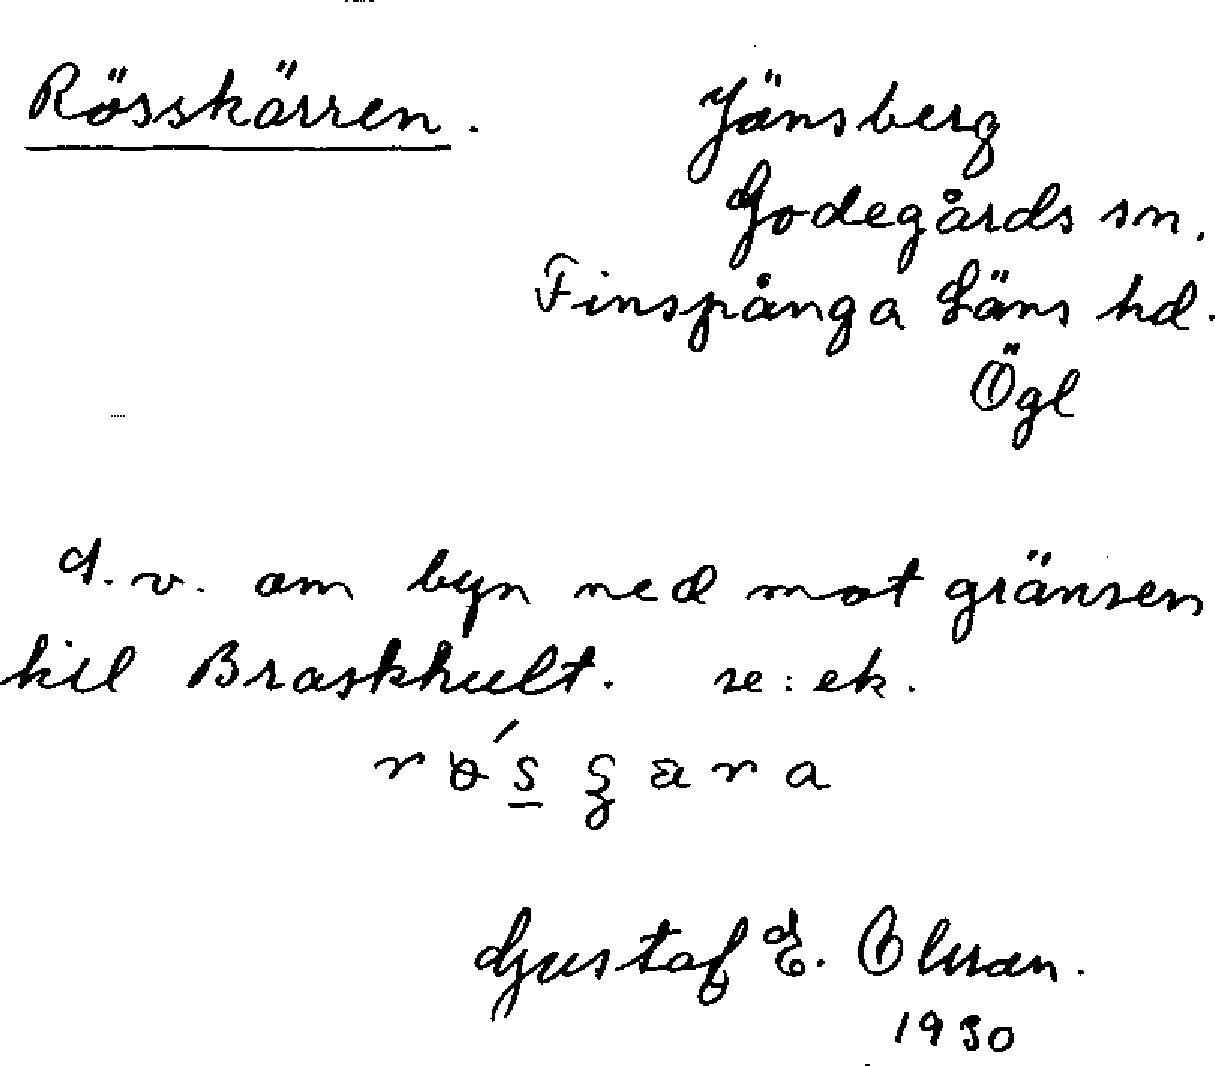 Rösskärren.
Jänsberg
Godegårds sn.
Finspånga Läns hd.
Ögl
d.v. om byn ned mot gränsen
till Braskhult. se: ek.
Gustaf E. Olsson.
1930